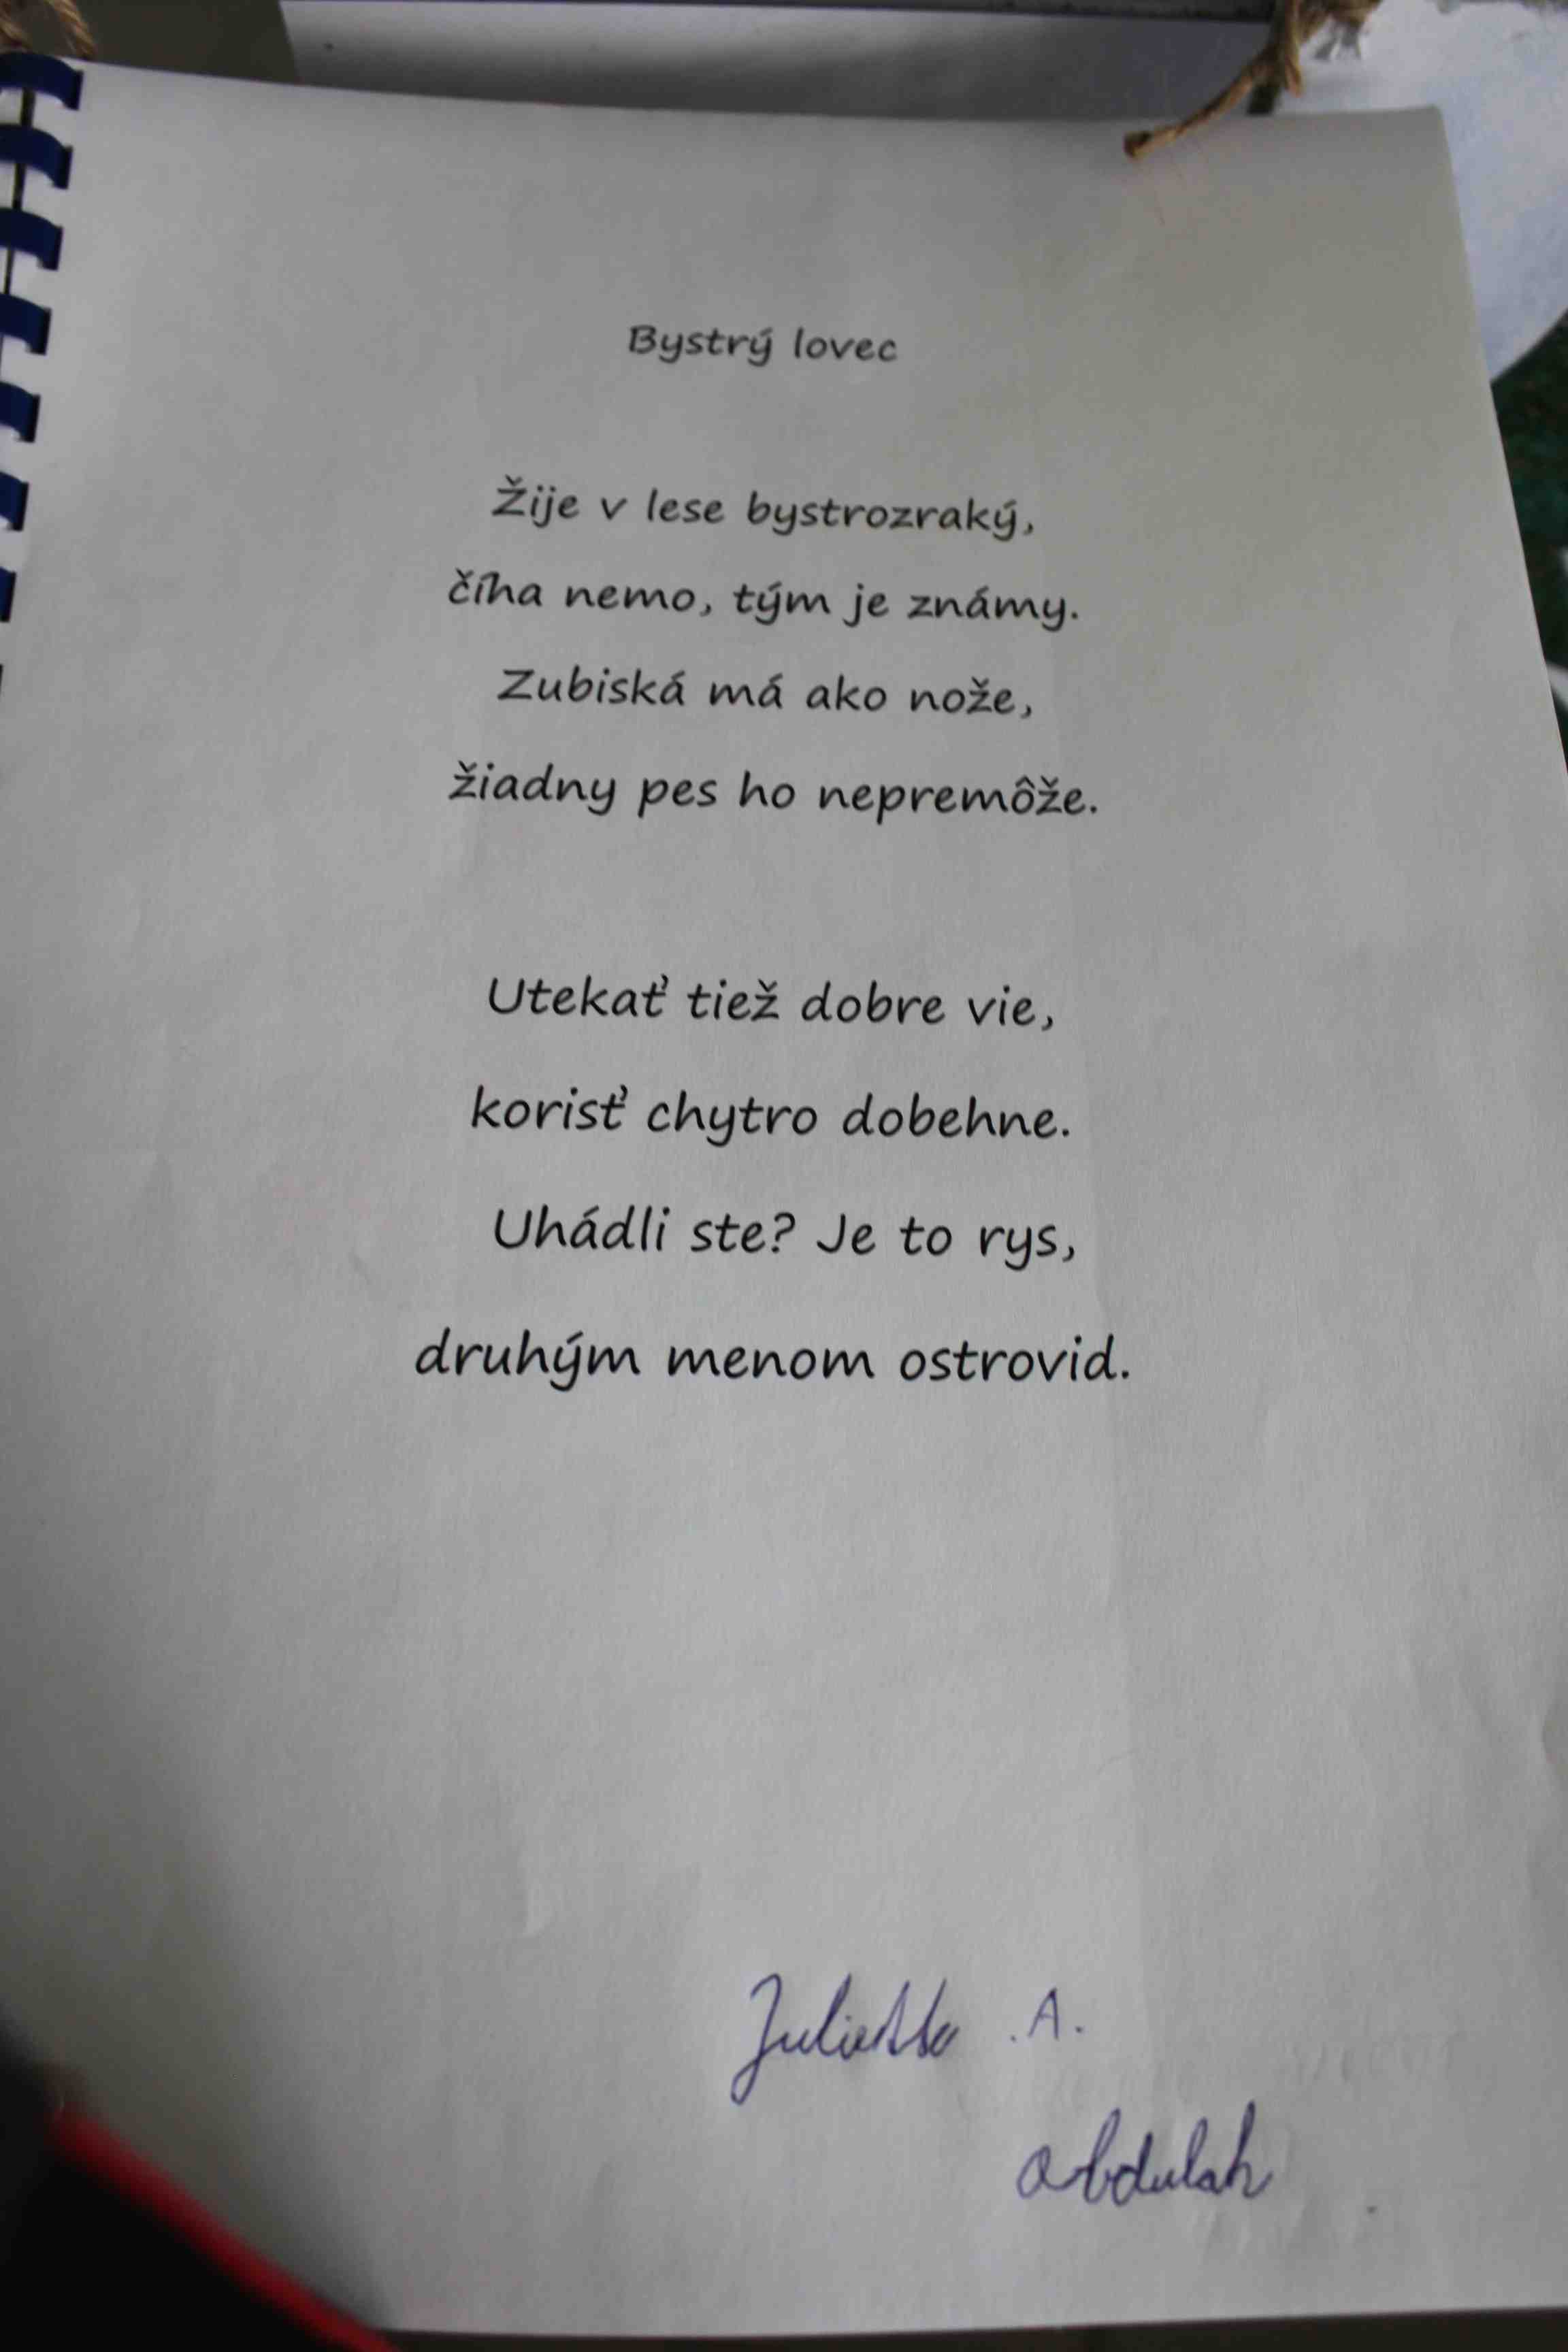 Bystrý lovec
Žije v lese bystrozraký,
číha nemo, tým je známy.
Zubiská má ako nože,
žiadny pes ho nepremôže.
Utekať tiež dobre vie,
korisť chytro dobehne.
Uhádli ste? Je to rys,
druhým menom ostrovid.
Julietta .A.
Abdulah